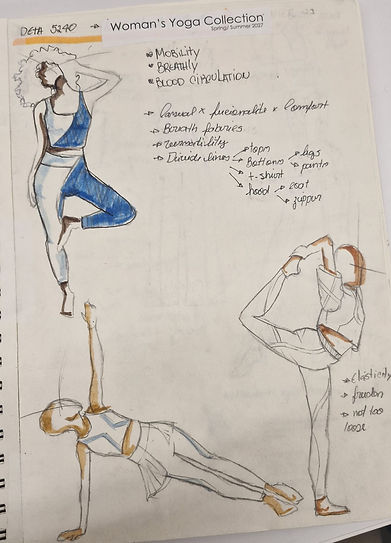 DETA 5240
Woman's Yoga Collection
Spring/ Summer 2027
MOBILITY
BREATHLY
BLOOD CIRCULATION
Casual x x Comfort
fabrics
Divide lines → topn
Bottoms → legs
→ pants
→ t-shirt
hood → coat
→ zipper
→ Elasticity
→ freedom
→ not too
loose